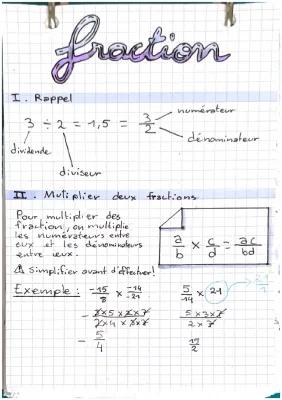 fraction
I. Rappel
3 ÷ 2 = 1,5 = 3/2
numérateur
dénominateur
dividende
diviseur
II. Mutiplier deux fractions
Pour multiplier des
fraction, on multiplie
les numérateurs entre
eux et les dénominateurs
entre eux.
a/b × c/d = ac/bd
⚠ simplifier avant d'effectuer!
Exemple : -15/8 × -14/-21
5/14 × 21
- 3×5×2×7/2×4×3×7
5×3×7/2×7
- 5/4